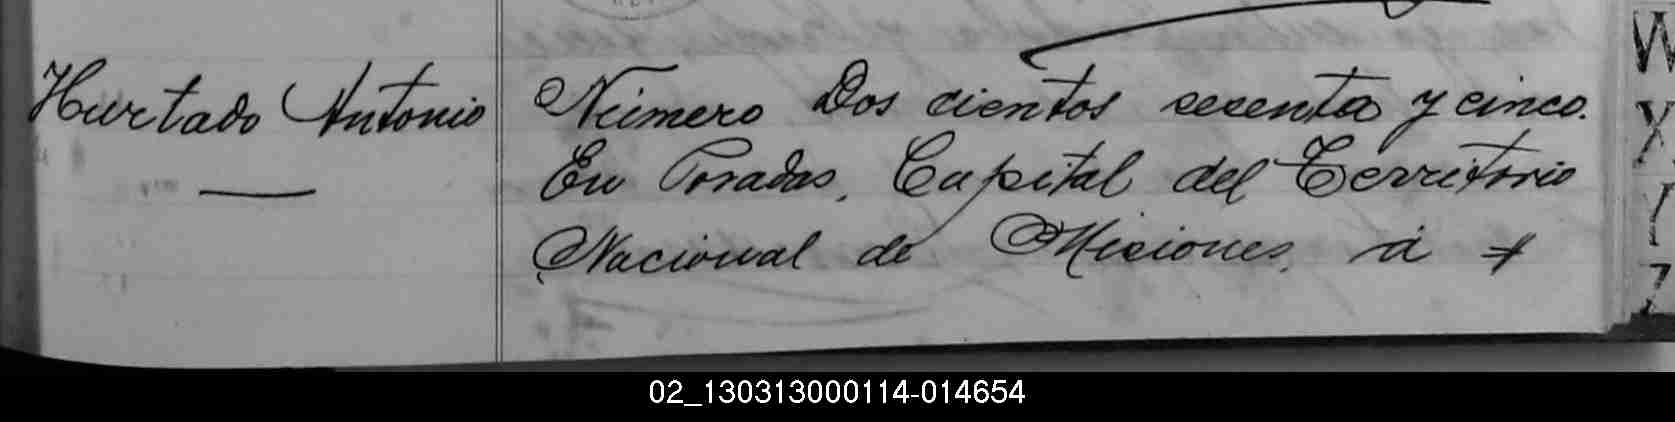 Hurtado Antonio
Número Dos cientos sesenta y cinco.
En Posadas, Capital del Territorio
Nacional de Misiones, á
W
X
Y
Z
02_130313000114-014654